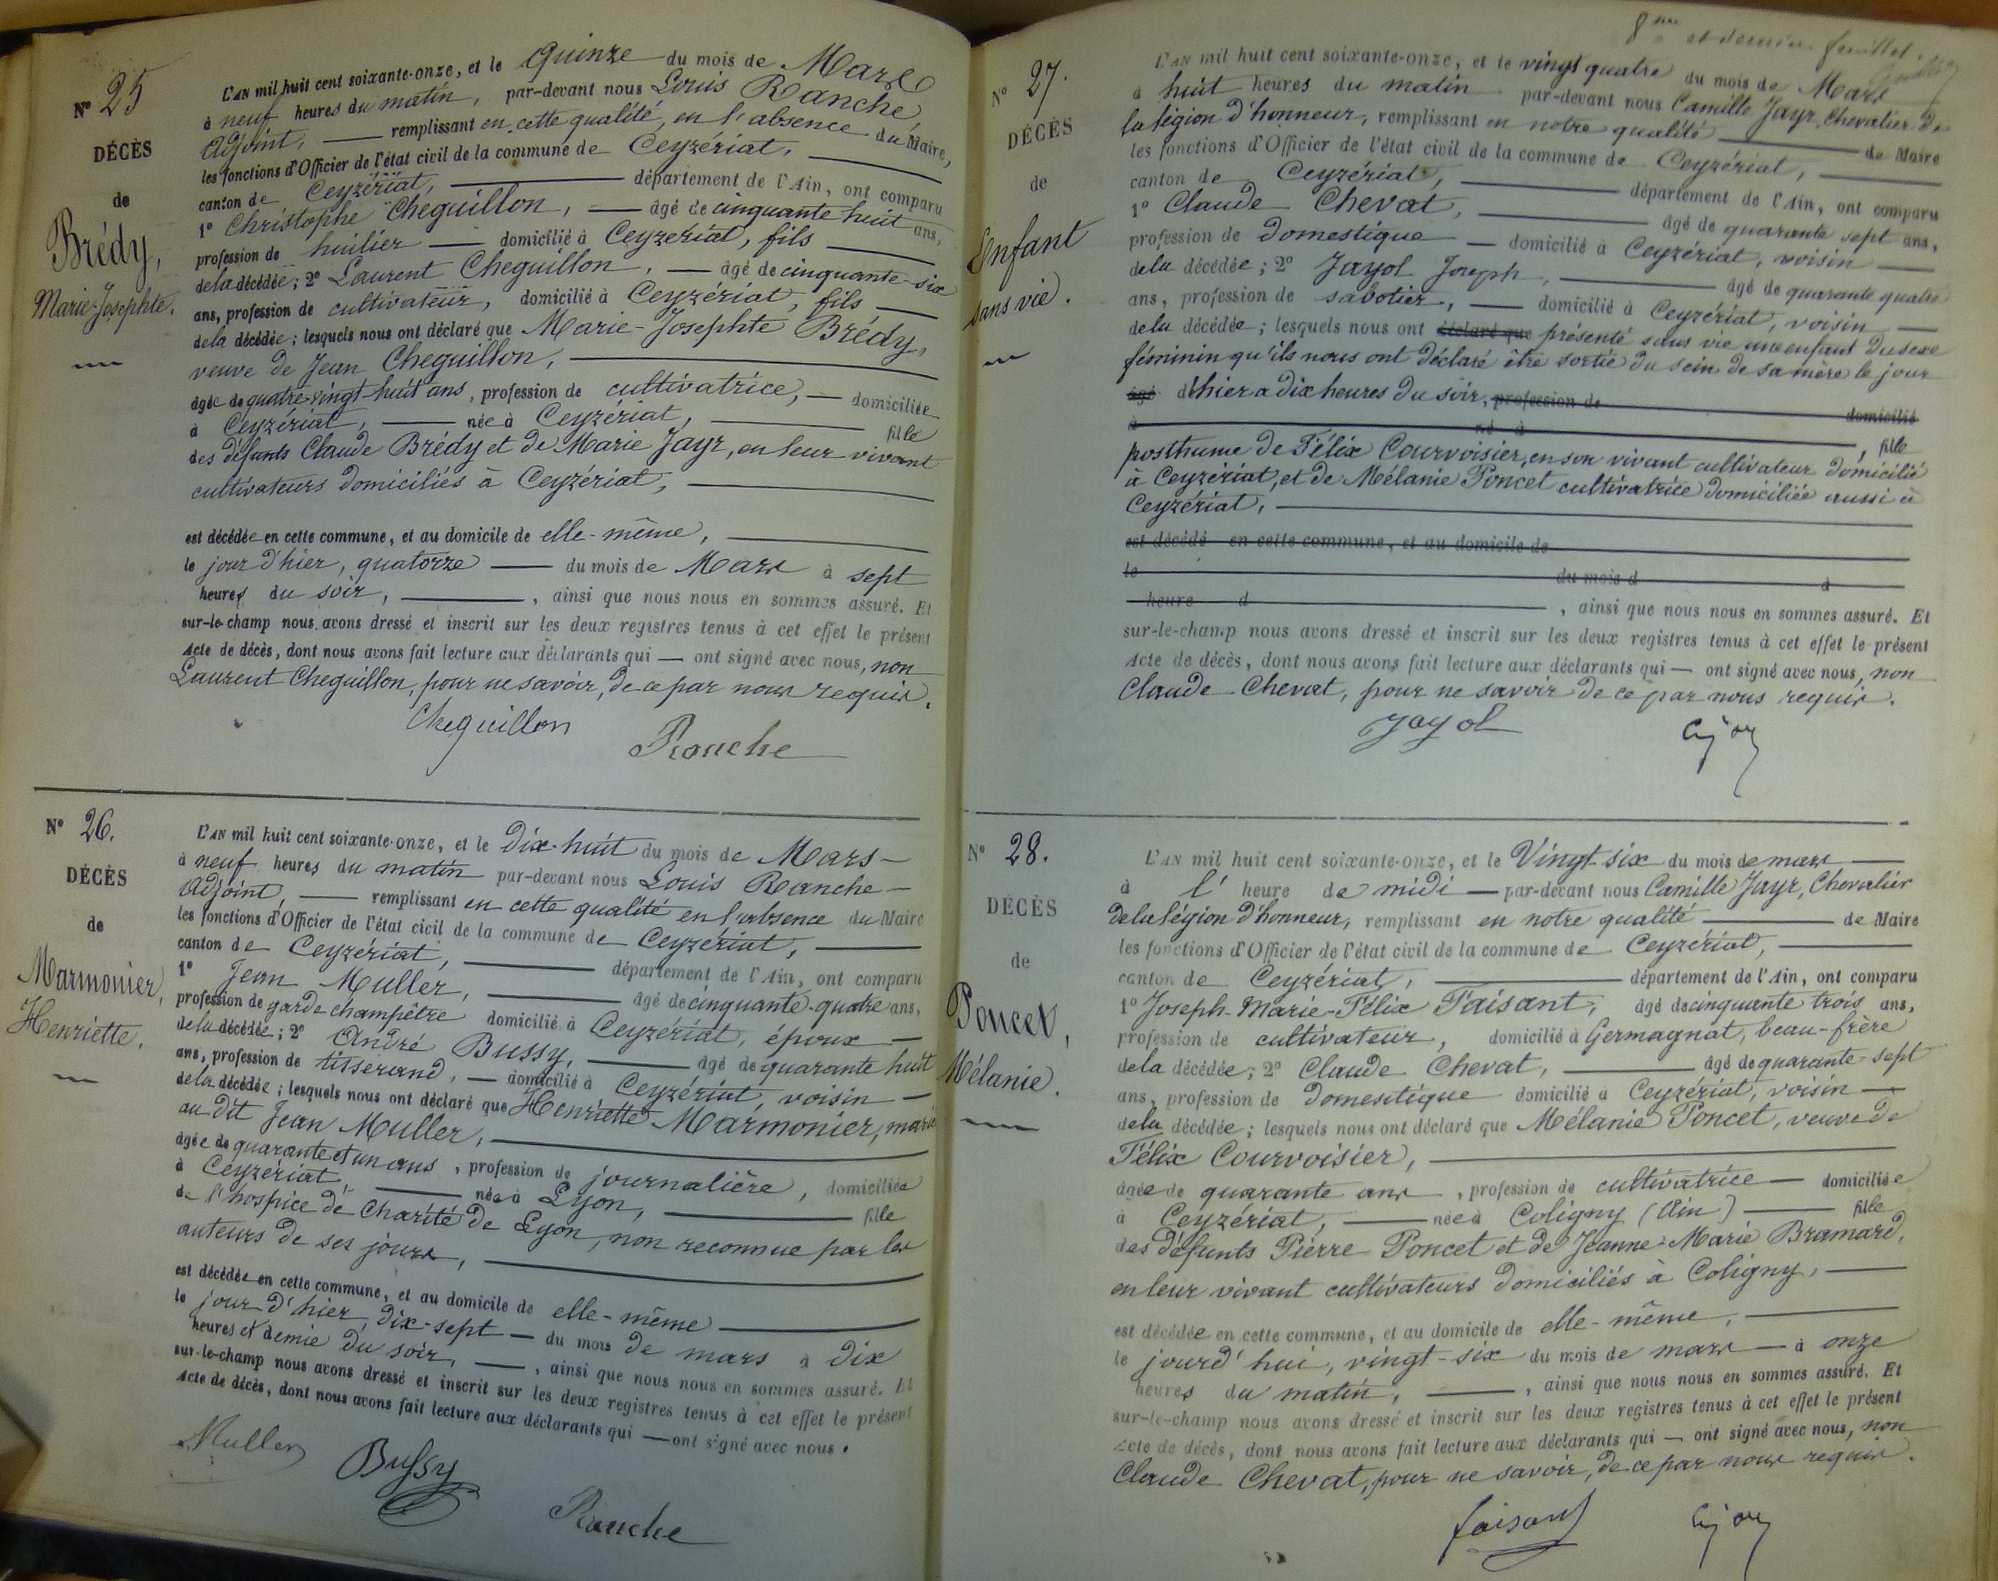 N° 25
DÉCÈS
de
Brédy,
Marie-Josephte.
L'AN mil huit cent soixante-onze, et le Quinze du mois de Mars
à neuf heures du matin, par-devant nous Louis Ranche,
Adjoint, remplissant en cette qualité, en l'absence du Maire,
les fonctions d'Officier de l'état civil de la commune de Ceyzériat,
canton de Ceyzériat, département de l'Ain, ont comparu
1° Christophe Cheguillon, âgé de cinquante huit ans,
profession de huilier domicilié à Ceyzeriat, fils
de la décédée; 2° Laurent Cheguillon, âgé de cinquante-six
ans, profession de cultivateur, domicilié à Ceyzériat, fils
de la décédée; lesquels nous ont déclaré que Marie-Josephte Brédy,
veuve de Jean Cheguillon,
âgée de quatre-vingt-huit ans, profession de cultivatrice, domiciliée
à Ceyzériat, née à Ceyzériat, fille
des défunts Claude Brédy et de Marie Jayr, en leur vivant
cultivateurs domiciliés à Ceyzériat,
est décédée en cette commune, et au domicile de elle-même,
le jour d'hier, quatorze du mois de Mars à sept
heures du soir, , ainsi que nous nous en sommes assuré. Et
sur-le-champ nous avons dressé et inscrit sur les deux registres tenus à cet effet le présent
Acte de décès, dont nous avons fait lecture aux déclarants qui — ont signé avec nous, non
Laurent Cheguillon, pour ne savoir, de ce par nous requis.
Cheguillon Ranche
N° 26.
DÉCÈS
de
Marmonier,
Henriette.
L'AN mil huit cent soixante-onze, et le Dix-huit du mois de Mars
à neuf heures du matin par-devant nous Louis Ranche
Adjoint, remplissant en cette qualité en l'absence du Maire
les fonctions d'Officier de l'état civil de la commune de Ceyzériat,
canton de Ceyzériat, département de l'Ain, ont comparu
1° Jean Muller, âgé de cinquante-quatre ans,
profession de garde champêtre domicilié à Ceyzériat, époux
de la décédée; 2° André Bussy, âgé de quarante huit
ans, profession de tisserand, domicilié à Ceyzériat, voisin
de la décédée; lesquels nous ont déclaré que Henriette Marmonier, mariée
au dit Jean Muller,
âgée de quarante et un ans, profession de journalière, domiciliée
à Ceyzériat née à Lyon, fille
de l'hospice de Charité de Lyon, non reconnue par les
auteurs de ses jours,
est décédée en cette commune, et au domicile de elle-même
le jour d'hier, dix-sept du mois de mars à dix
heures et demie du soir, , ainsi que nous nous en sommes assuré. Et
sur-le-champ nous avons dressé et inscrit sur les deux registres tenus à cet effet le présent
Acte de décès, dont nous avons fait lecture aux déclarants qui — ont signé avec nous.
Muller Bussy Ranche
8me et dernier feuillet.
N° 27.
DÉCÈS
de
Enfant
sans vie.
L'AN mil huit cent soixante-onze, et le vingt quatre du mois de Mars
à huit heures du matin par-devant nous Camille Jayr, Chevalier de
la légion d'honneur, remplissant en notre qualité de Maire
les fonctions d'Officier de l'état civil de la commune de Ceyzériat,
canton de Ceyzériat, département de l'Ain, ont comparu
1° Claude Chevat, âgé de quarante sept ans,
profession de domestique domicilié à Ceyzériat, voisin
de la décédée; 2° Jayol Joseph, âgé de quarante quatre
ans, profession de sabotier, domicilié à Ceyzériat, voisin
de la décédée; lesquels nous ont déclaré que présenté sans vie une enfant du sexe
féminin qu'ils nous ont déclaré être sortie du sein de sa mère le jour
âgé d'hier a dix heures du soir, profession de domicilié
à né à , fille
posthume de Félix Courvoisier, en son vivant cultivateur domicilié
à Ceyzériat, et de Mélanie Poncet cultivatrice domiciliée aussi à
Ceyzériat,
est décédé en cette commune, et au domicile de
le du mois d à
heure d , ainsi que nous nous en sommes assuré. Et
sur-le-champ nous avons dressé et inscrit sur les deux registres tenus à cet effet le présent
Acte de décès, dont nous avons fait lecture aux déclarants qui — ont signé avec nous, non
Claude Chevat, pour ne savoir de ce par nous requis.
Jayol C Jayr
N° 28.
DÉCÈS
de
Poncet,
Mélanie.
L'AN mil huit cent soixante-onze, et le Vingt-six du mois de mars
à l' heure de midi par-devant nous Camille Jayr, Chevalier
de la légion d'honneur, remplissant en notre qualité de Maire
les fonctions d'Officier de l'état civil de la commune de Ceyzériat,
canton de Ceyzériat, département de l'Ain, ont comparu
1° Joseph-Marie-Félix Faisant, âgé de cinquante trois ans,
profession de cultivateur, domicilié à Germagnat, beau-frère
de la décédée; 2° Claude Chevat, âgé de quarante-sept
ans, profession de Domestique domicilié à Ceyzériat, voisin
de la décédée; lesquels nous ont déclaré que Mélanie Poncet, veuve de
Félix Courvoisier,
âgée de quarante ans, profession de cultivatrice domiciliée
à Ceyzériat, née à Coligny (Ain) fille
des défunts Pierre Poncet et de Jeanne-Marie Bramard,
en leur vivant cultivateurs domiciliés à Coligny,
est décédée en cette commune, et au domicile de elle-même,
le jourd'hui, vingt-six du mois de mars à onze
heures du matin, , ainsi que nous nous en sommes assuré. Et
sur-le-champ nous avons dressé et inscrit sur les deux registres tenus à cet effet le présent
Acte de décès, dont nous avons fait lecture aux déclarants qui — ont signé avec nous, non
Claude Chevat, pour ne savoir, de ce par nous requis.
faisant C Jayr